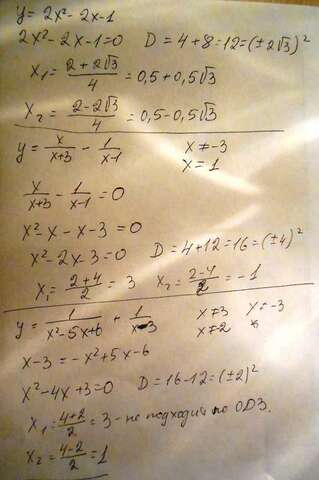 y = 2x² - 2x - 1
2x² - 2x - 1 = 0 D = 4 + 8 = 12 = (±2√3)²
x₁ = (2 + 2√3)/4 = 0,5 + 0,5√3
x₂ = (2 - 2√3)/4 = 0,5 - 0,5√3
y = x/(x+3) - 1/(x-1) x ≠ -3
x = 1
x/(x+3) - 1/(x-1) = 0
x² - x - x - 3 = 0
x² - 2x - 3 = 0 D = 4 + 12 = 16 = (±4)²
x₁ = (2+4)/2 = 3 x₂ = (2-4)/2 = -1
y = 1/(x² - 5x + 6) + 1/(x-3) x ≠ 3
x ≠ 2
x - 3 = -x² + 5x - 6
x² - 4x + 3 = 0 D = 16 - 12 = (±2)²
x₁ = (4+2)/2 = 3 - не подходит по ОДЗ.
x₂ = (4-2)/2 = 1